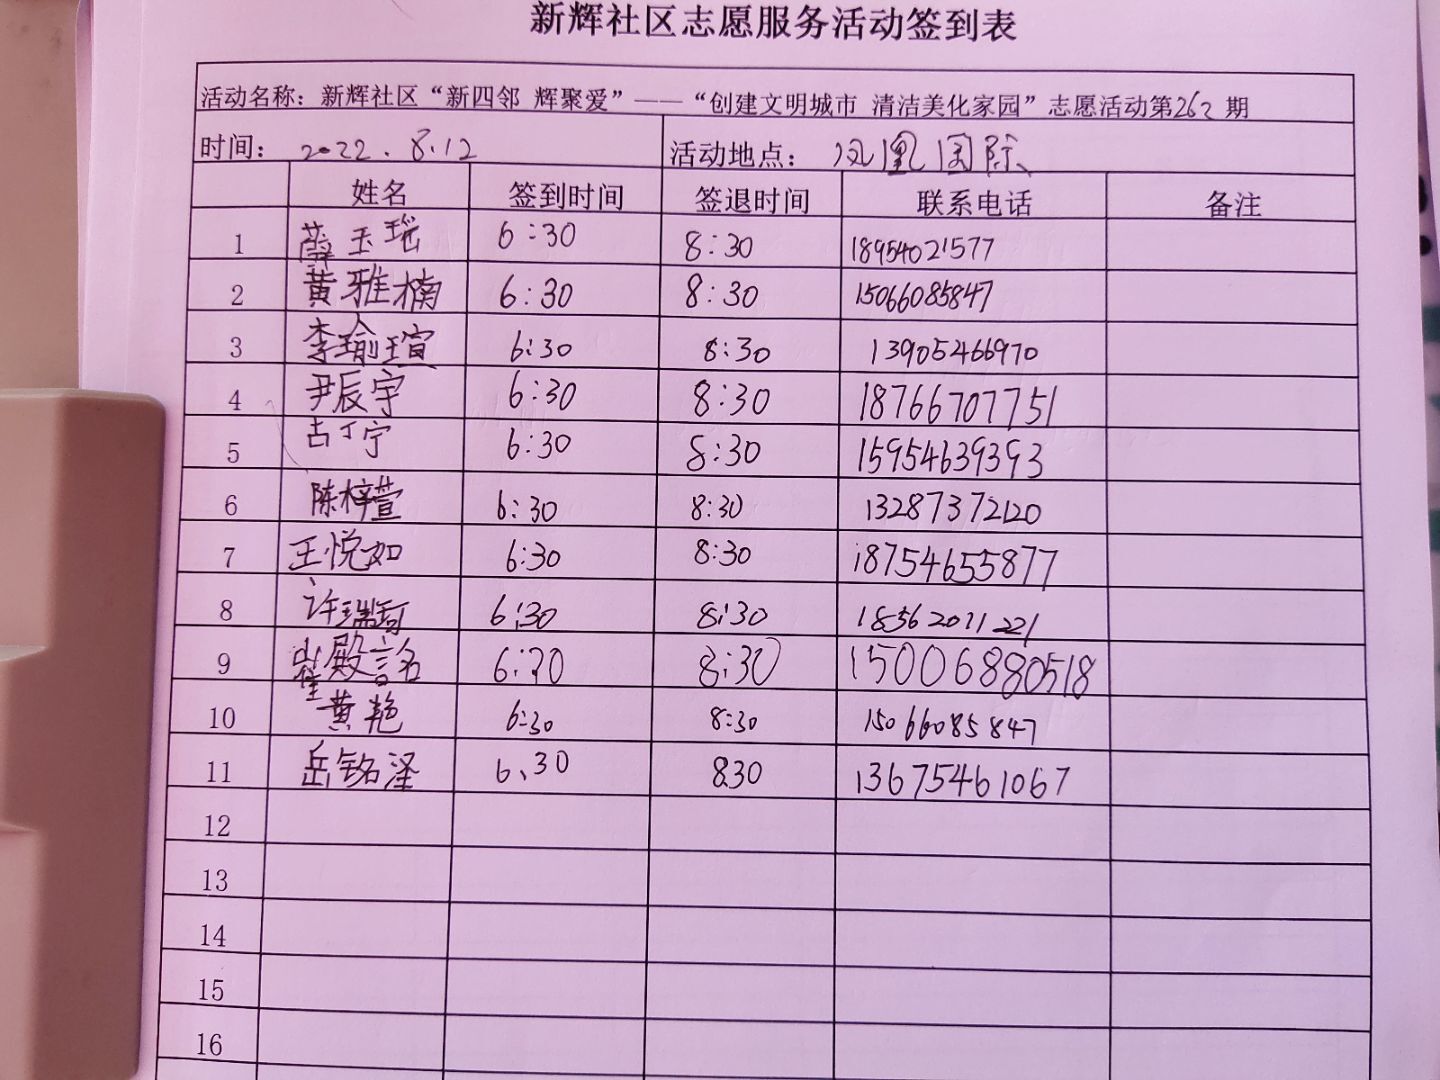 新辉社区志愿服务活动签到表
活动名称：新辉社区“新四邻 辉聚爱”——“创建文明城市 清洁美化家园”志愿活动第262期
时间： 2022.8.12 活动地点： 凤凰国际
姓名 签到时间 签退时间 联系电话 备注
1 薛玉瑶 6:30 8:30 18954021577
2 黄雅楠 6:30 8:30 15066085847
3 李瑜瑄 6:30 8:30 13905466970
4 尹辰宇 6:30 8:30 18766707751
5 古丁宁 6:30 8:30 15954639393
6 陈梓萱 6:30 8:30 13287372120
7 王悦如 6:30 8:30 18754655877
8 许瑞珂 6:30 8:30 18562011221
9 崔殿詺 6:30 8:30 15006880518
10 黄艳 6:30 8:30 15066085847
11 岳铭泽 6.30 830 13675461067
12
13
14
15
16